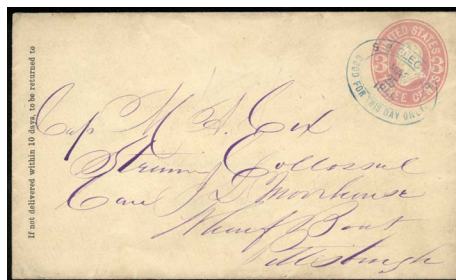 If not delivered within 10 days, to be returned to
UNITED STATES
3 3
THREE CENTS
GOOD FOR THIS DAY ONLY
Cap M. A. Cox
Steamer Collossal
Care J. D. Moorhouse
Wharf Boat
Pittsburgh